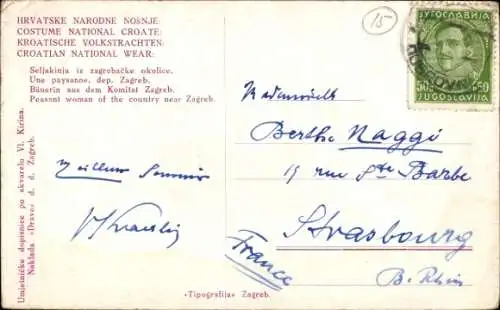 HRVATSKE NARODNE NOSNJE:
COSTUME NATIONAL CROATE:
KROATISCHE VOLKSTRACHTEN:
CROATIAN NATIONAL WEAR:
Seljakinja iz zagrebačke okolice.
Une paysanne, dep. Zagreb.
Bäuerin aus dem Komitat Zagreb.
Peasant woman of the country near Zagreb.
Umjetničke dopisnice po akvarelu Vl. Kirina.
Naklada »Drava« d. d. Zagreb.
Meilleur Souvenir
15
ЈУГОСЛАВИЈА
50 50
JUGOSLAVIJA
Mademoiselle
Berthe Naggi
15 rue Ste Barbe
Strasbourg
B. Rhin
France
»Tipografija« Zagreb.